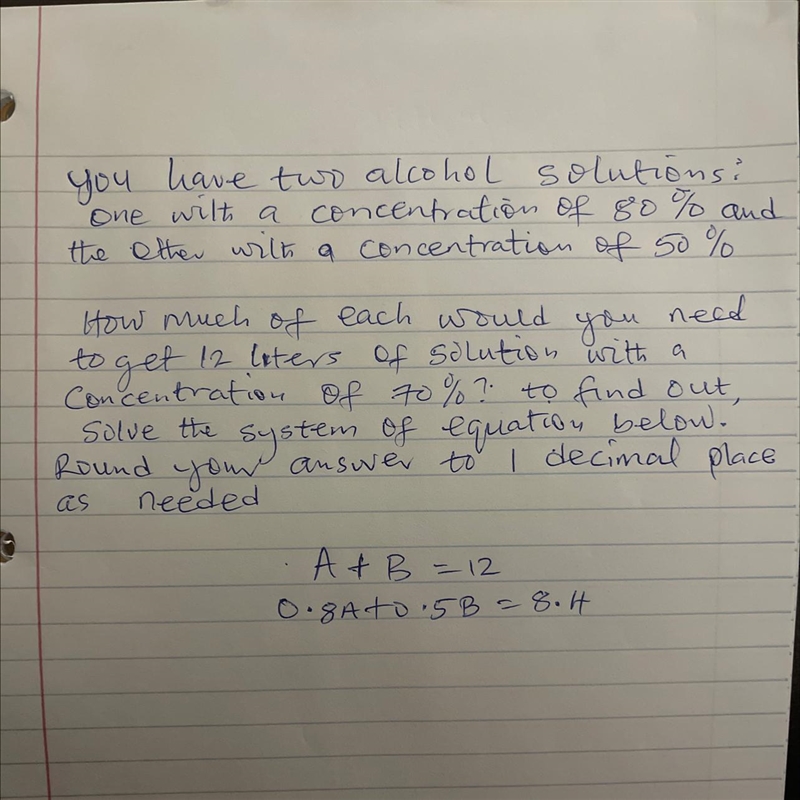 you have two alcohol solutions:
one with a concentration of 80% and
the other with a concentration of 50%
How much of each would you need
to get 12 liters of solution with a
concentration of 70%? to find out,
solve the system of equation below.
Round your answer to 1 decimal place
as needed
A + B = 12
0.8A+0.5B = 8.4